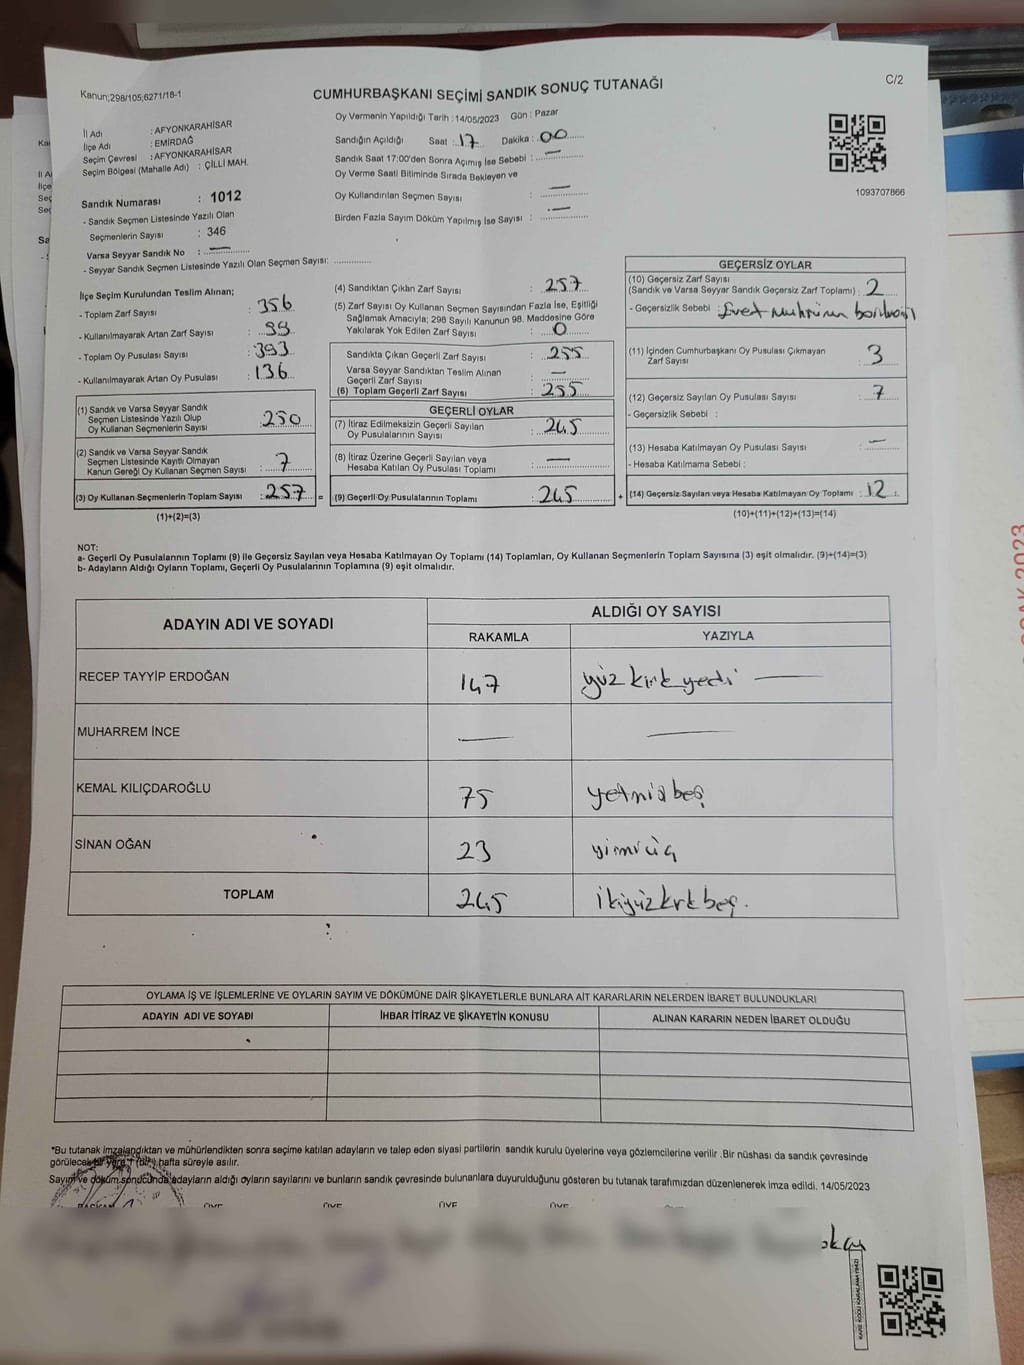 Kanun;298/105;6271/18-1
C/2
CUMHURBAŞKANI SEÇİMİ SANDIK SONUÇ TUTANAĞI
İl Adı : AFYONKARAHİSAR
İlçe Adı : EMİRDAĞ
Seçim Çevresi : AFYONKARAHİSAR
Seçim Bölgesi (Mahalle Adı) : ÇİLLİ MAH.
Sandık Numarası : 1012
- Sandık Seçmen Listesinde Yazılı Olan
Seçmenlerin Sayısı : 346
Varsa Seyyar Sandık No : —
- Seyyar Sandık Seçmen Listesinde Yazılı Olan Seçmen Sayısı: ..............
Oy Vermenin Yapıldığı Tarih : 14/05/2023 Gün : Pazar
Sandığın Açıldığı Saat : 17 Dakika : 00
Sandık Saat 17:00'den Sonra Açımış İse Sebebi : —
Oy Verme Saati Bitiminde Sırada Bekleyen ve
Oy Kullandırılan Seçmen Sayısı : —
Birden Fazla Sayım Döküm Yapılmış İse Sayısı : —
1093707866
İlçe Seçim Kurulundan Teslim Alınan;
- Toplam Zarf Sayısı : 356
- Kullanılmayarak Artan Zarf Sayısı : 99
- Toplam Oy Pusulası Sayısı : 393
- Kullanılmayarak Artan Oy Pusulası : 136
(1) Sandık ve Varsa Seyyar Sandık
Seçmen Listesinde Yazılı Olup
Oy Kullanan Seçmenlerin Sayısı : 250
(2) Sandık ve Varsa Seyyar Sandık
Seçmen Listesinde Kayıtlı Olmayan
Kanun Gereği Oy Kullanan Seçmen Sayısı : 7
(3) Oy Kullanan Seçmenlerin Toplam Sayısı : 257 =
(1)+(2)=(3)
(4) Sandıktan Çıkan Zarf Sayısı : 257
(5) Zarf Sayısı Oy Kullanan Seçmen Sayısından Fazla İse, Eşitliği
Sağlamak Amacıyla; 298 Sayılı Kanunun 98. Maddesine Göre
Yakılarak Yok Edilen Zarf Sayısı : 0
Sandıkta Çıkan Geçerli Zarf Sayısı : 255
Varsa Seyyar Sandıktan Teslim Alınan
Geçerli Zarf Sayısı : —
(6) Toplam Geçerli Zarf Sayısı : 255
GEÇERLİ OYLAR
(7) İtiraz Edilmeksizin Geçerli Sayılan
Oy Pusulalarının Sayısı : 245
(8) İtiraz Üzerine Geçerli Sayılan veya
Hesaba Katılan Oy Pusulası Toplamı : —
(9) Geçerli Oy Pusulalarının Toplamı : 245 +
GEÇERSİZ OYLAR
(10) Geçersiz Zarf Sayısı
(Sandık ve Varsa Seyyar Sandık Geçersiz Zarf Toplamı) : 2
- Geçersizlik Sebebi : Evet Mührünün
(11) İçinden Cumhurbaşkanı Oy Pusulası Çıkmayan
Zarf Sayısı : 3
(12) Geçersiz Sayılan Oy Pusulası Sayısı : 7
- Geçersizlik Sebebi :
(13) Hesaba Katılmayan Oy Pusulası Sayısı : —
- Hesaba Katılmama Sebebi :
(14) Geçersiz Sayılan veya Hesaba Katılmayan Oy Toplamı : 12
(10)+(11)+(12)+(13)=(14)
NOT:
a- Geçerli Oy Pusulalarının Toplamı (9) ile Geçersiz Sayılan veya Hesaba Katılmayan Oy Toplamı (14) Toplamları, Oy Kullanan Seçmenlerin Toplam Sayısına (3) eşit olmalıdır. (9)+(14)=(3)
b- Adayların Aldığı Oyların Toplamı, Geçerli Oy Pusulalarının Toplamına (9) eşit olmalıdır.
ADAYIN ADI VE SOYADI ALDIĞI OY SAYISI
RAKAMLA YAZIYLA
RECEP TAYYİP ERDOĞAN 147 yüz kırk yedi —
MUHARREM İNCE — —
KEMAL KILIÇDAROĞLU 75 yetmiş beş
SİNAN OĞAN 23 yimrüç
TOPLAM 245 ikiyüzkırkbeş.
OYLAMA İŞ VE İŞLEMLERİNE VE OYLARIN SAYIM VE DÖKÜMÜNE DAİR ŞİKAYETLERLE BUNLARA AİT KARARLARIN NELERDEN İBARET BULUNDUKLARI
ADAYIN ADI VE SOYADI İHBAR İTİRAZ VE ŞİKAYETİN KONUSU ALINAN KARARIN NEDEN İBARET OLDUĞU
*Bu tutanak imzalandıktan ve mühürlendikten sonra seçime katılan adayların ve talep eden siyasi partilerin sandık kurulu üyelerine veya gözlemcilerine verilir .Bir nüshası da sandık çevresinde
görülecek bir yere 1 (bir) hafta süreyle asılır.
Sayım ve döküm sonucunda adayların aldığı oyların sayılarını ve bunların sandık çevresinde bulunanlara duyurulduğunu gösteren bu tutanak tarafımızdan düzenlenerek imza edildi. 14/05/2023
BAŞKAN ÜYE ÜYE ÜYE ÜYE ÜYE
OCAK 2023